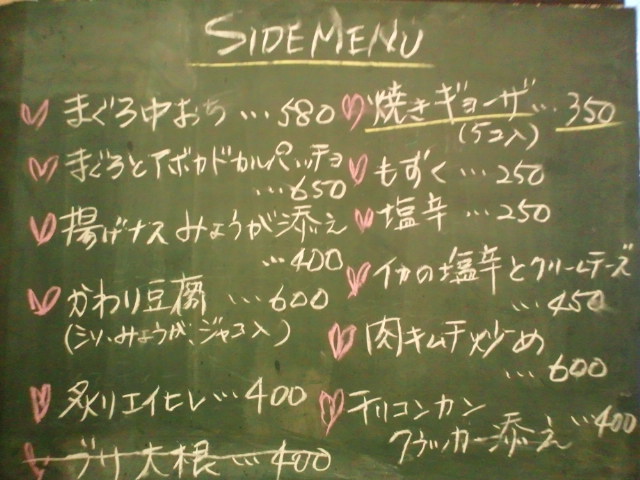 SIDE MENU
まぐろ中おち…580
まぐろとアボカドカルパッチョ
…650
揚げナスみょうが添え
…400
かわり豆腐…600
(シソ、みょうが、ジャコ入)
炙りエイヒレ…400
ブリ大根…400
焼きギョーザ…350
(5コ入)
もずく…250
塩辛…250
イカの塩辛とクリームチーズ
…450
肉キムチ炒め
…600
チリコンカン
クラッカー添え…400